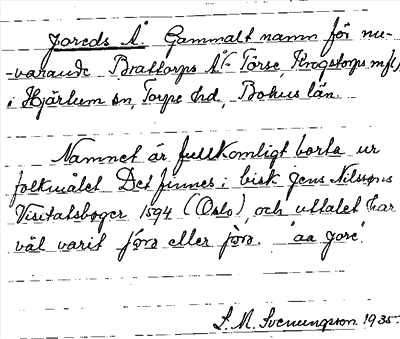 Joreds Å. Gammalt namn för nu-
-varande Brattorps Å - Torse, Krogstorps mfl,
i Hjärtum sn, Torpe hd, Bohus län.
Namnet är fullkomligt borta ur
folkmålet. Det finnes i bisk. Jens Nilssøns
Visitatsbøger 1594 (Oslo), och uttalet har
väl varit eller "aa gore".
S. M. Svenungsson. 1935.